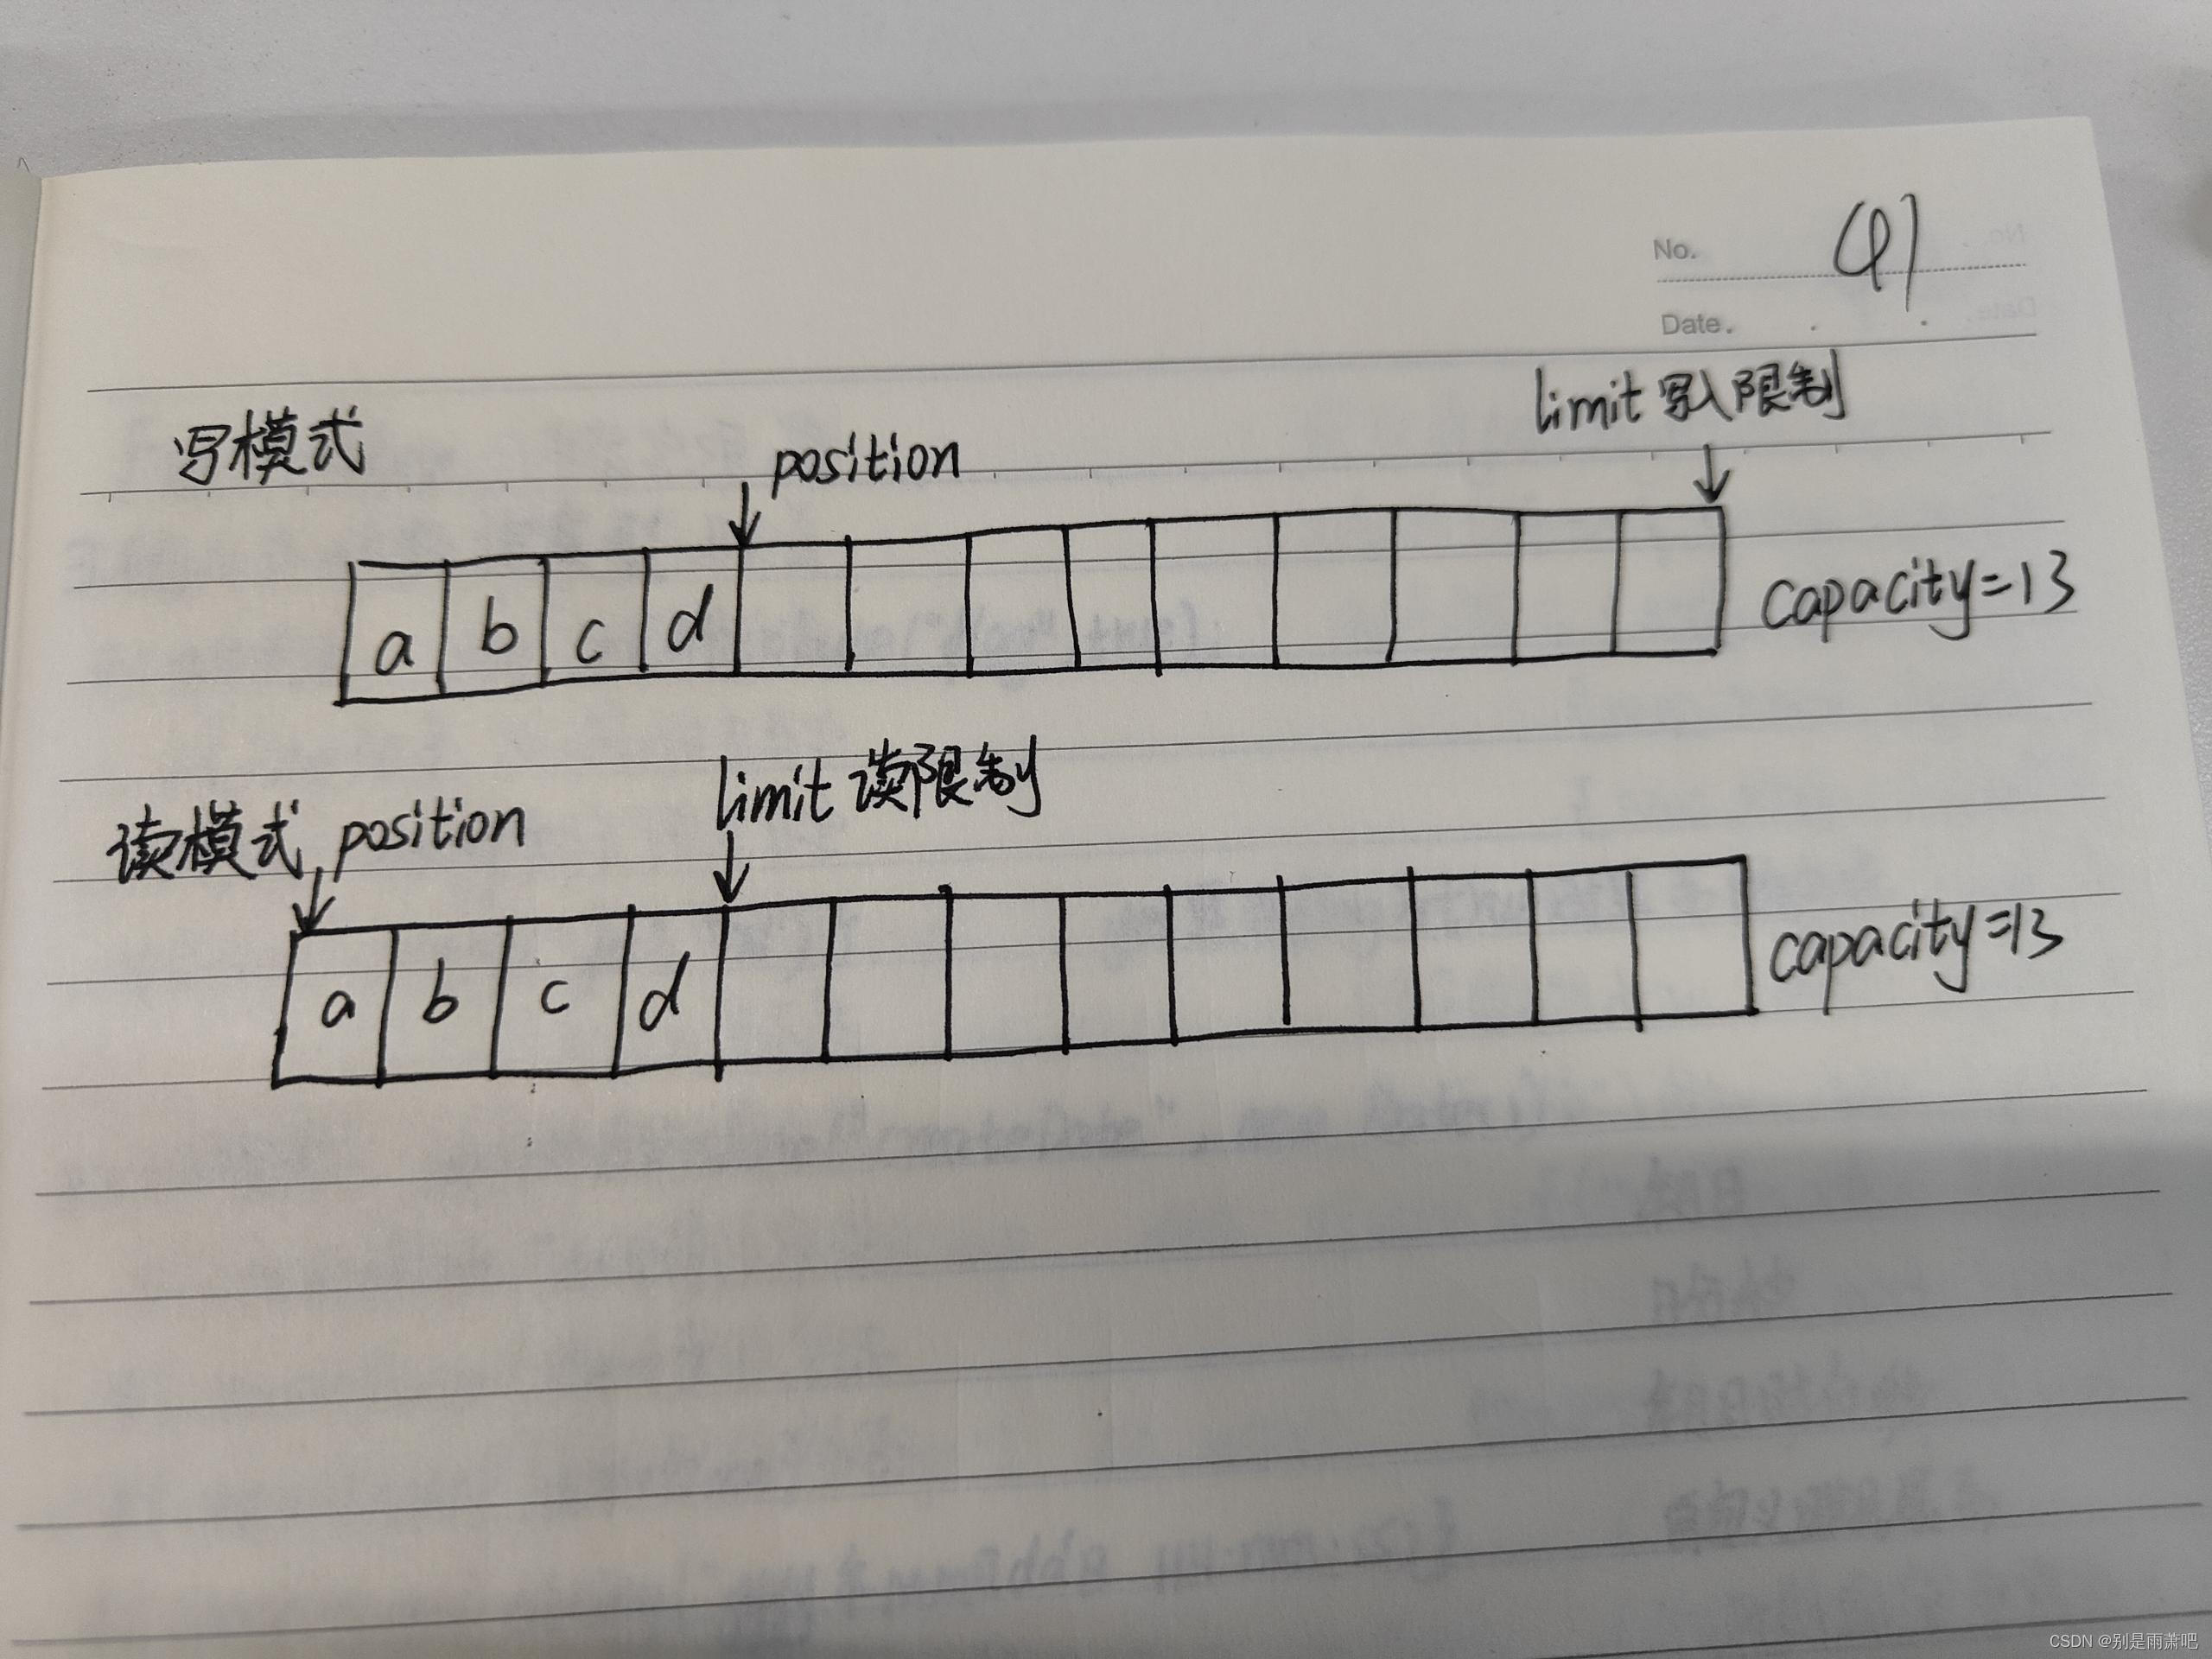 No. 41
Date. . .
limit 写入限制
写模式 position
a b c d
capacity=13
limit 读限制
读模式 position
a b c d
capacity=13
CSDN @别是雨萧吧